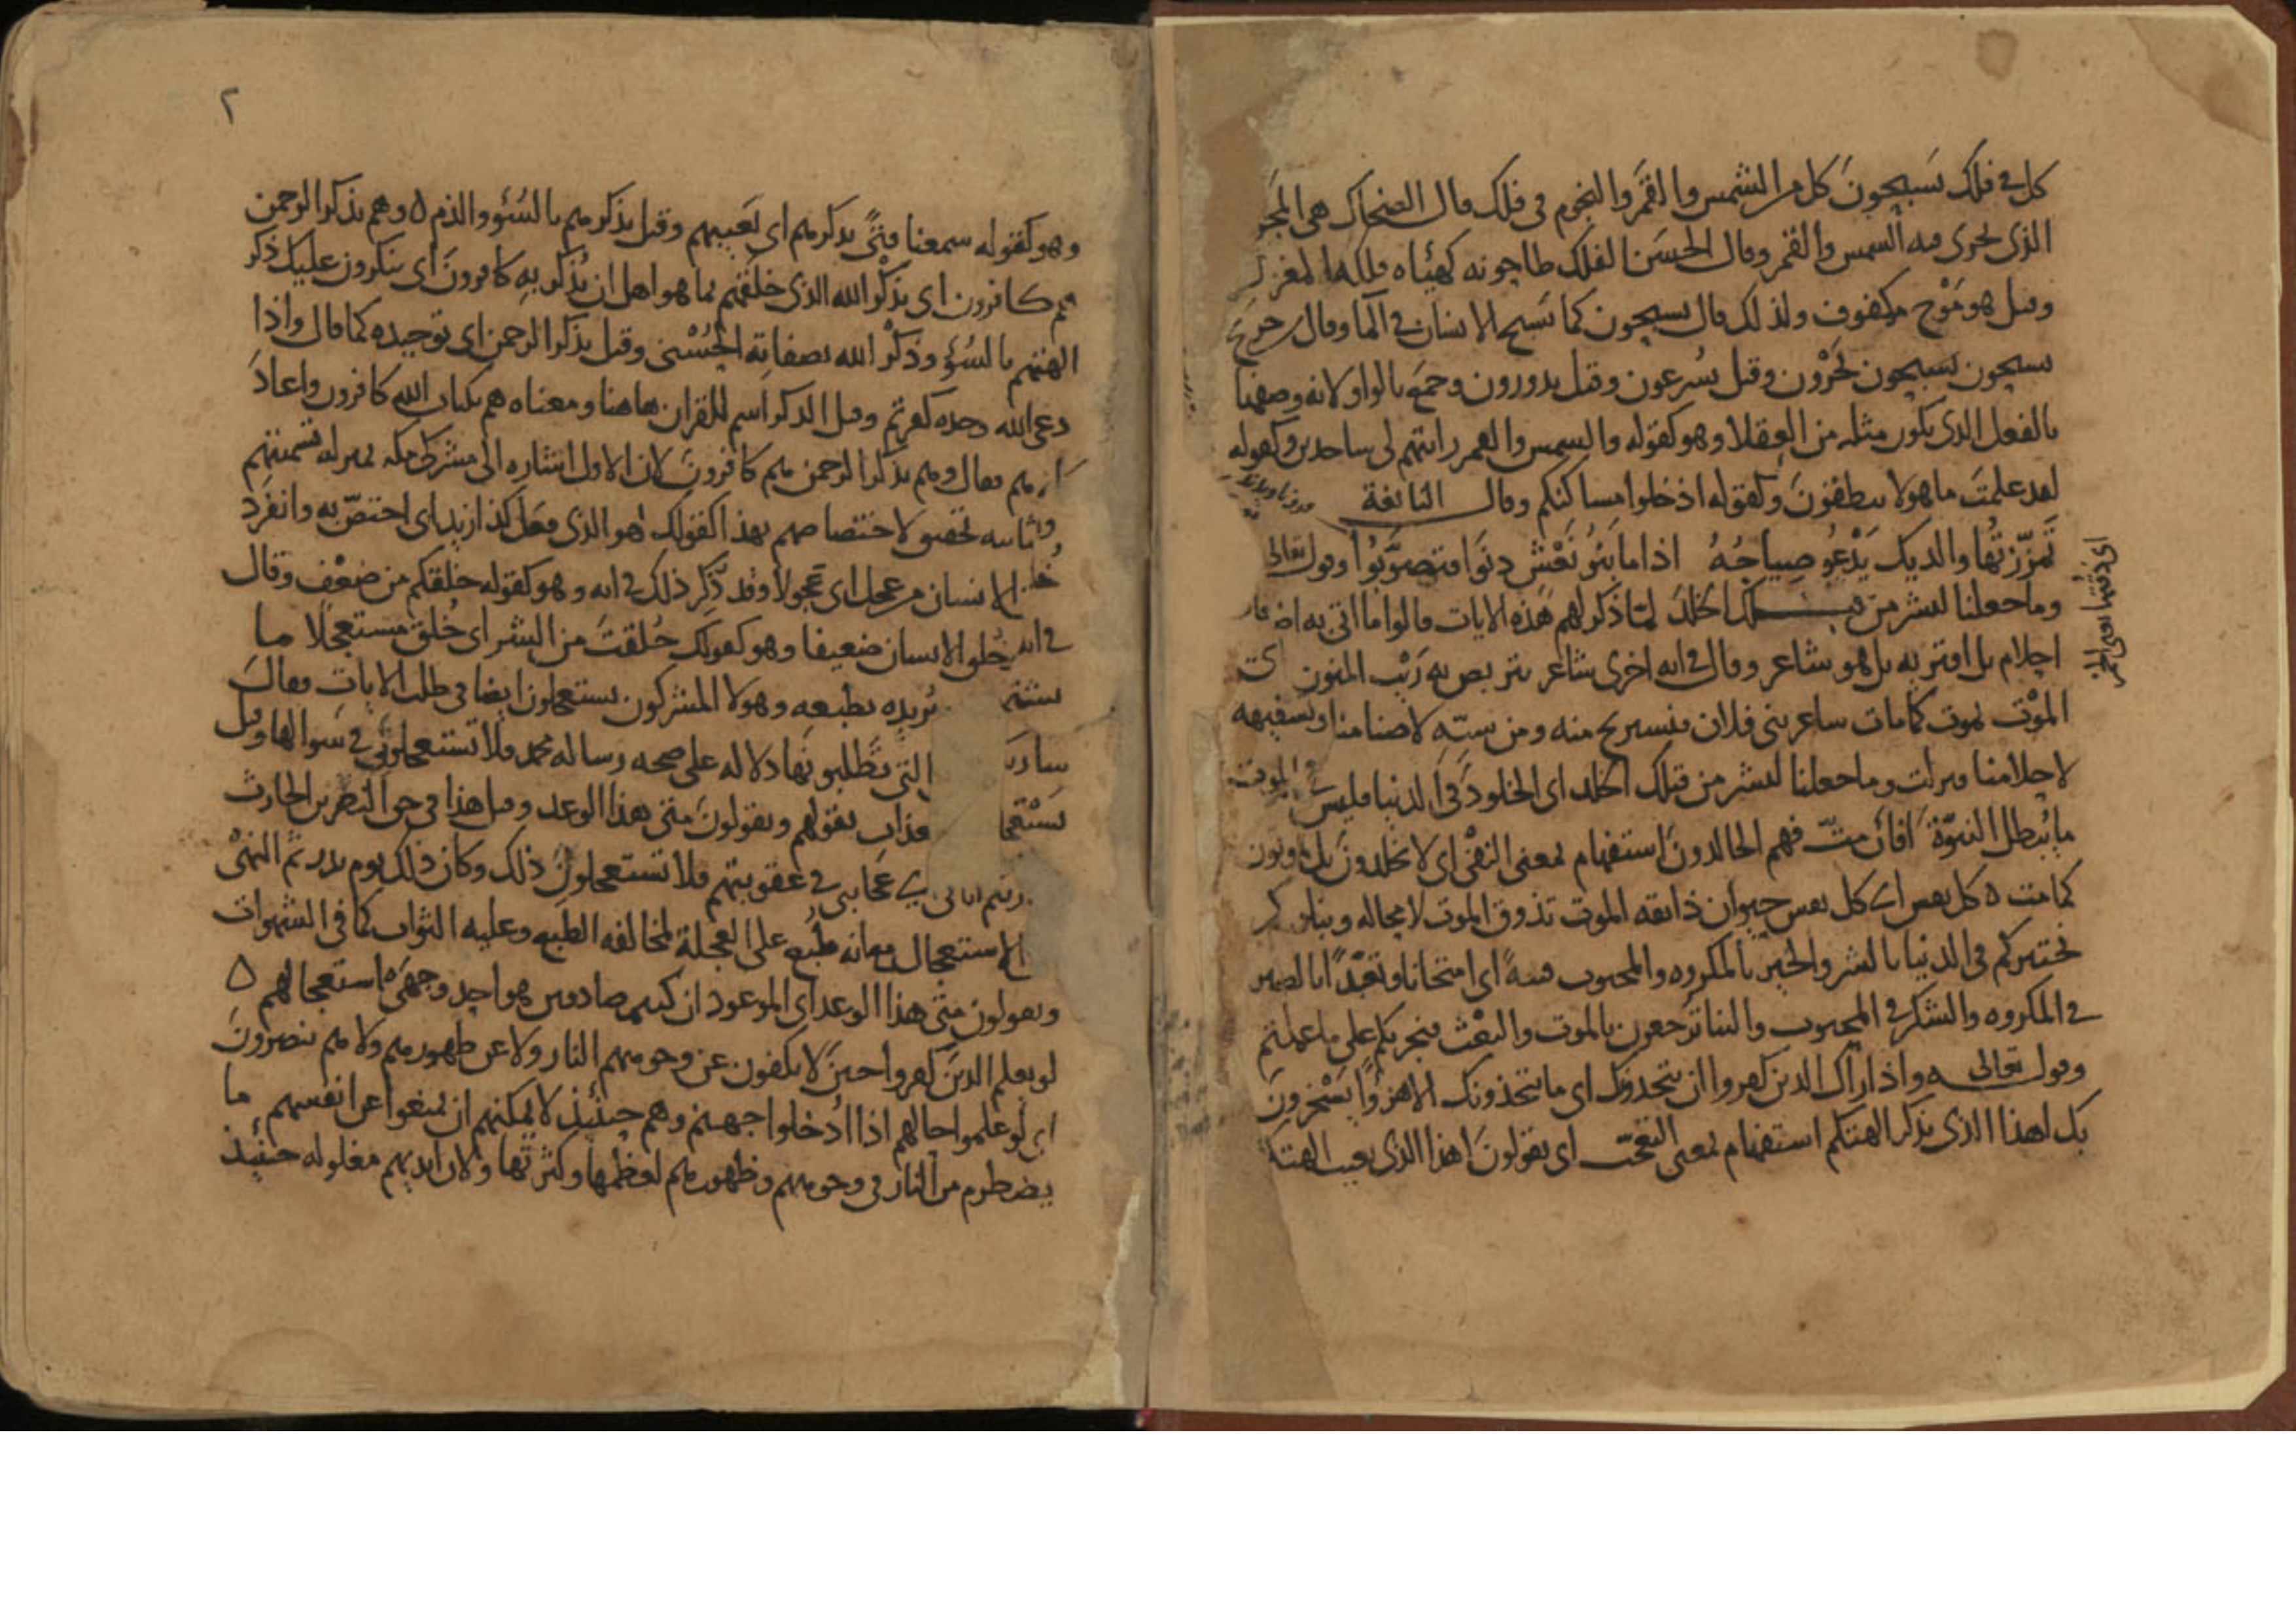 كل في فلك يسبحون كل من الشمس والقمر والنجوم في فلك قال الضحاك هي المجر
الذي تجري فيه الشمس والقمر وقال الحسن الفلك طاحونة كهيئة فلكة المغزل
وقيل هو موج مكفوف ولذلك قال يسبحون كما تسبح الانسان في الما وقال
يسبحون يسبحون يجرون وقيل يسرعون وقيل يدورون وجمع بالواو لانه وصفها
بالفعل الذي يكون مثله من العقلا وهو كقوله والشمس والقمر رايتهم لي ساجدين وكقوله
لقد علمت ما هولا ينطقون وكقوله ادخلوا مساكنكم وقال النابغة
تمززتها والديك يدعو صياحه اذا ما بنو نعش دنوا فتصوبوا وقوله تعالى
وما جعلنا لبشر من قبلك الخلد لما ذكر لهم هذه الايات قالوا ما اتى به اضغاث
احلام بل افتريه بل هو شاعر وقال في اية اخرى شاعر نتربص به ريب المنون اي
الموت يموت كما مات شاعر بني فلان فنستريح منه ومن سبه لاصنامنا وتسفيهه
لاحلامنا فنزلت وما جعلنا لبشر من قبلك الخلد اي الخلود في الدنيا فليس الموت
ما يبطل النبوة افائن مت فهم الخالدون استفهام بمعنى النفي اي لا يخلدون بل يموتون
كما مت ه كل نفس اي كل نفس حيوان ذائقة الموت تذوق الموت لا محالة ونبلوكم
نختبركم في الدنيا بالشر والخير بالمكروه والمحبوب فتنة اي امتحانا وتعبدا بالصبر
في المكروه والشكر في المحبوب والينا ترجعون بالموت والبعث فنجزيكم على ما عملتم
وقوله تعالى واذا راك الذين كفروا ان يتخذونك اي ما يتخذونك الا هزوا يسخرون
بك اهذا الذي يذكر الهتكم استفهام بمعنى التعجب اي يقولون اهذا الذي يعيب الهتكم
اي
٢
وهو كقوله سمعنا فتى يذكرهم اي يعيبهم وقيل يذكرهم بالسوء والذم ه وهم بذكر الرحمن
هم كافرون اي بذكر الله الذي خلقهم بما هو اهل ان يذكر به كافرون اي ينكرون عليك ذكر
الهتهم بالسوء وذكر الله بصفاته الحسنى وقيل بذكر الرحمن اي توحيده كما قال واذا
دعي الله وحده كفرتم وقيل الذكر اسم للقران هاهنا ومعناه هم بكتاب الله كافرون واعاد
هم فقال وهم بذكر الرحمن هم كافرون لان الاول اشارة الى مشركي مكة بمنزلة تسميتهم
وثانيه تحقيق لاختصاصهم بهذا كقولك هو الذي فعل كذا زيد اي اختص به وانفرد
خلق الانسان من عجل اي عجولا وقد ذكر ذلك في اية وهو كقوله خلقكم من ضعف وقال
في اية وخلق الانسان ضعيفا وهو كقولك خلقت من البشر اي خلق مستعجلا ما
يريده بطبعه وهولا المشركون يستعجلون ايضا في طلب الايات وقال
التي تطلبونها دلالة على صحة رسالة محمد فلا تستعجلوني في سوالها وقيل
عذاب بقولهم ويقولون متى هذا الوعد وقيل هذا في حق النضر بن الحارث
عجايبي في عقوبتهم فلا تستعجلون ذلك وكان ذلك يوم بدر ثم النهي
الاستعجال مع انه طبع على العجلة لمخالفة الطبع وعليه الثواب كما في الشهوات
ويقولون متى هذا الوعد اي الموعود ان كنتم صادقين هو احد وجهي استعجالهم ه
لو يعلم الذين كفروا حين لا يكفون عن وجوههم النار ولا عن ظهورهم ولا هم ينصرون
اي لو علموا حالهم اذا ادخلوا جهنم وهم حينئذ لا يمكنهم ان يمنعوا عن انفسهم ما
يضطرم من النار في وجوههم وظهورهم لعظمها وكثرتها ولان ايديهم مغلولة حينئذ